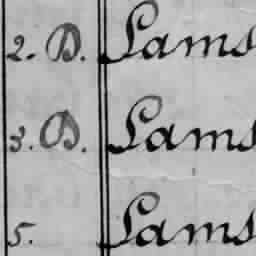 2. D. Lams
3. D. Lams
5. Lams